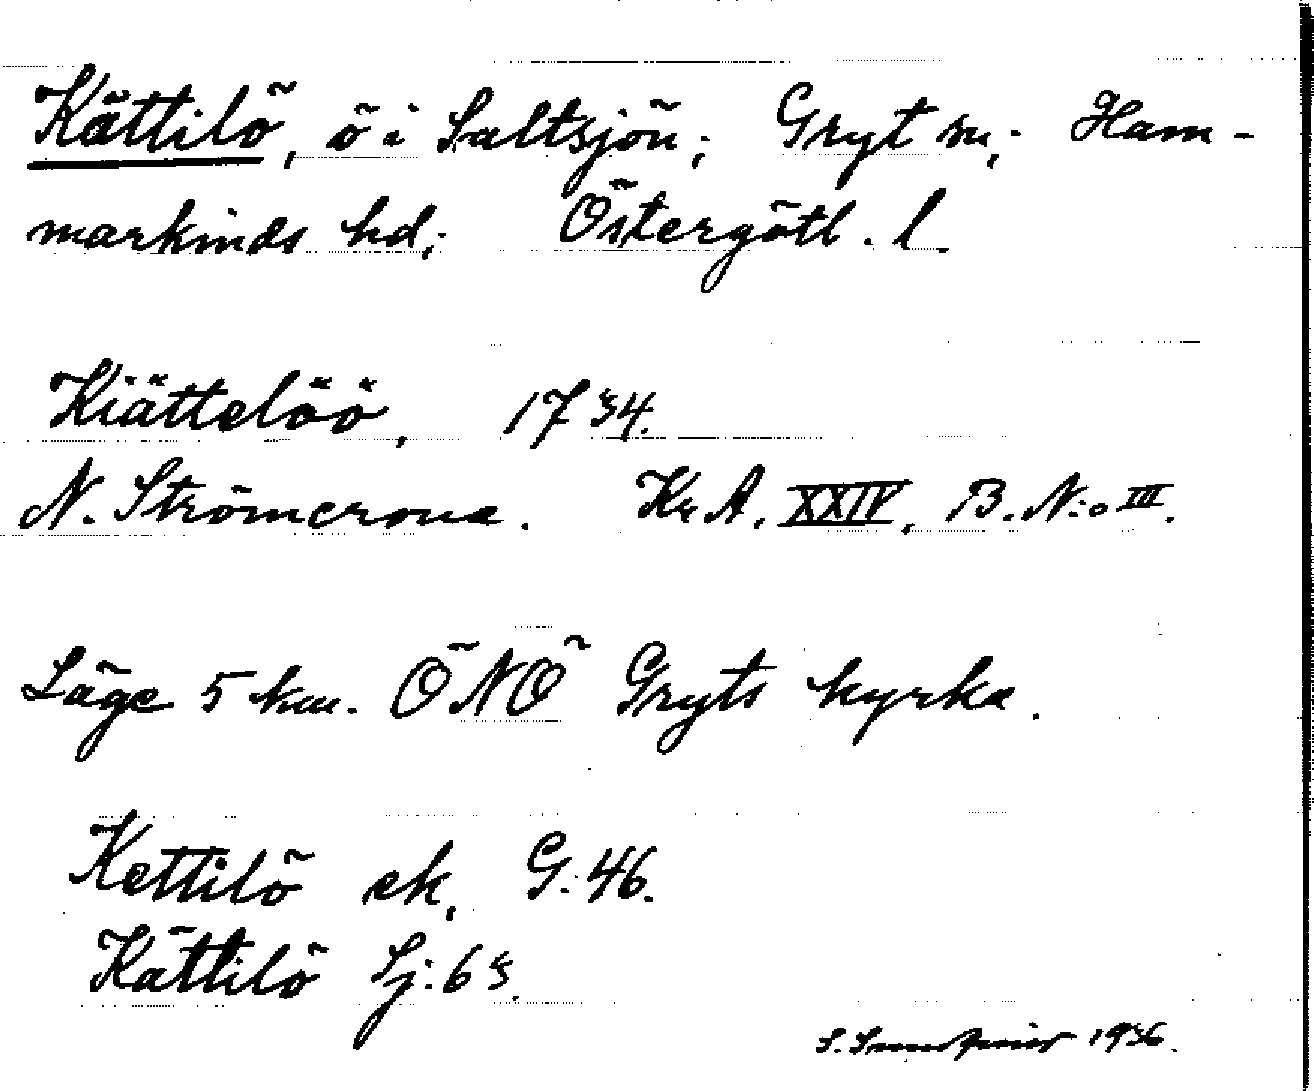 Kättilö, ö i Saltsjön; Gryt sn; Ham-
markinds hd; Östergötl. l.
Kiättelöö, 1734.
N. Strömcrona. Kr A. XXIV, B. N:o III.
Läge 5 km. ÖNÖ Gryts kyrka.
Kettilö ek, G:46.
Kättilö Sj:63.
S. 1936.